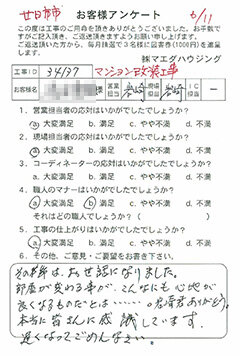 廿日市市 お客様アンケート 6/11
この度は工事のご用命を頂きありがとうございました。お手数で
すがご記入頂き、ご返送頂きますようお願い申し上げます。
ご返送頂いた方から、毎月抽選で3名様に図書券(1000円)を進呈
します。
㈱マエダハウジング
工事ID 34137 マンション改装工事
お客様名 様 営業担当 岩崎 現場担当 岩崎 IC担当 ー
1. 営業担当者の応対はいかがでしたでしょうか?
a. 大変満足 b. 満足 c. やや不満 d. 不満
2. 現場担当者の応対はいかがでしたでしょうか?
a. 大変満足 b. 満足 c. やや不満 d. 不満
3. コーディネーターの応対はいかがでしたでしょうか?
a. 大変満足 b. 満足 c. やや不満 d. 不満
4. 職人のマナーはいかがでしたでしょうか?
a. 大変満足 b. 満足 c. やや不満 d. 不満
それはどの職人でしょうか?( )
5. 工事の仕上がりはいかがでしたでしょうか?
a. 大変満足 b. 満足 c. やや不満 d. 不満
6. その他、ご意見・ご要望をお書き下さい。
その節は、お世話になりました。
部屋が変わる事が、こんなにも心地が
良くなるものだとは……。
本当に皆さんに感謝しています。
遅くなってごめんなさい。